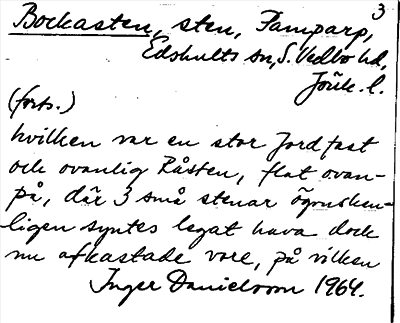 3
Bockasten, sten, Famparp,
Edshults sn, S. Vedbo hd,
Jönk. l.
(forts.)
hvilken var en stor Jordfast
och ovanlig Råsten, flat ovan-
på, där 3 små stenar ögonsken-
ligen syntes legat hava dock
nu afkastade vore, på vilken
Inger Danielsson 1964.